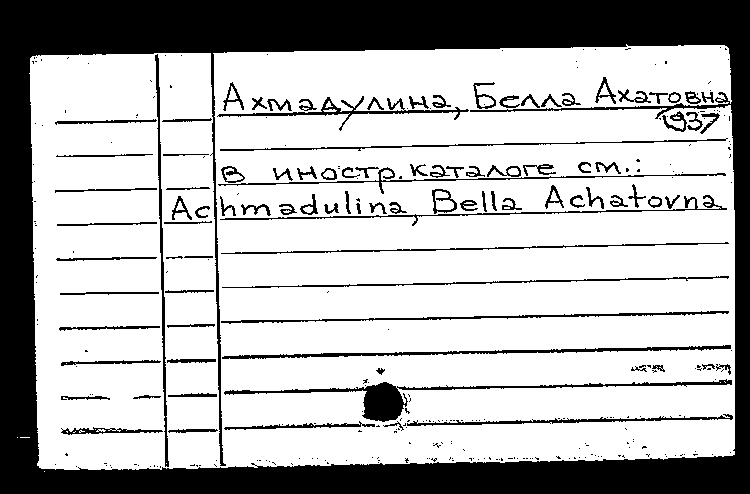 Ахмадулина, Белла Ахатовна
1937
в иностр. каталоге см.:
Achmadulina, Bella Achatovna